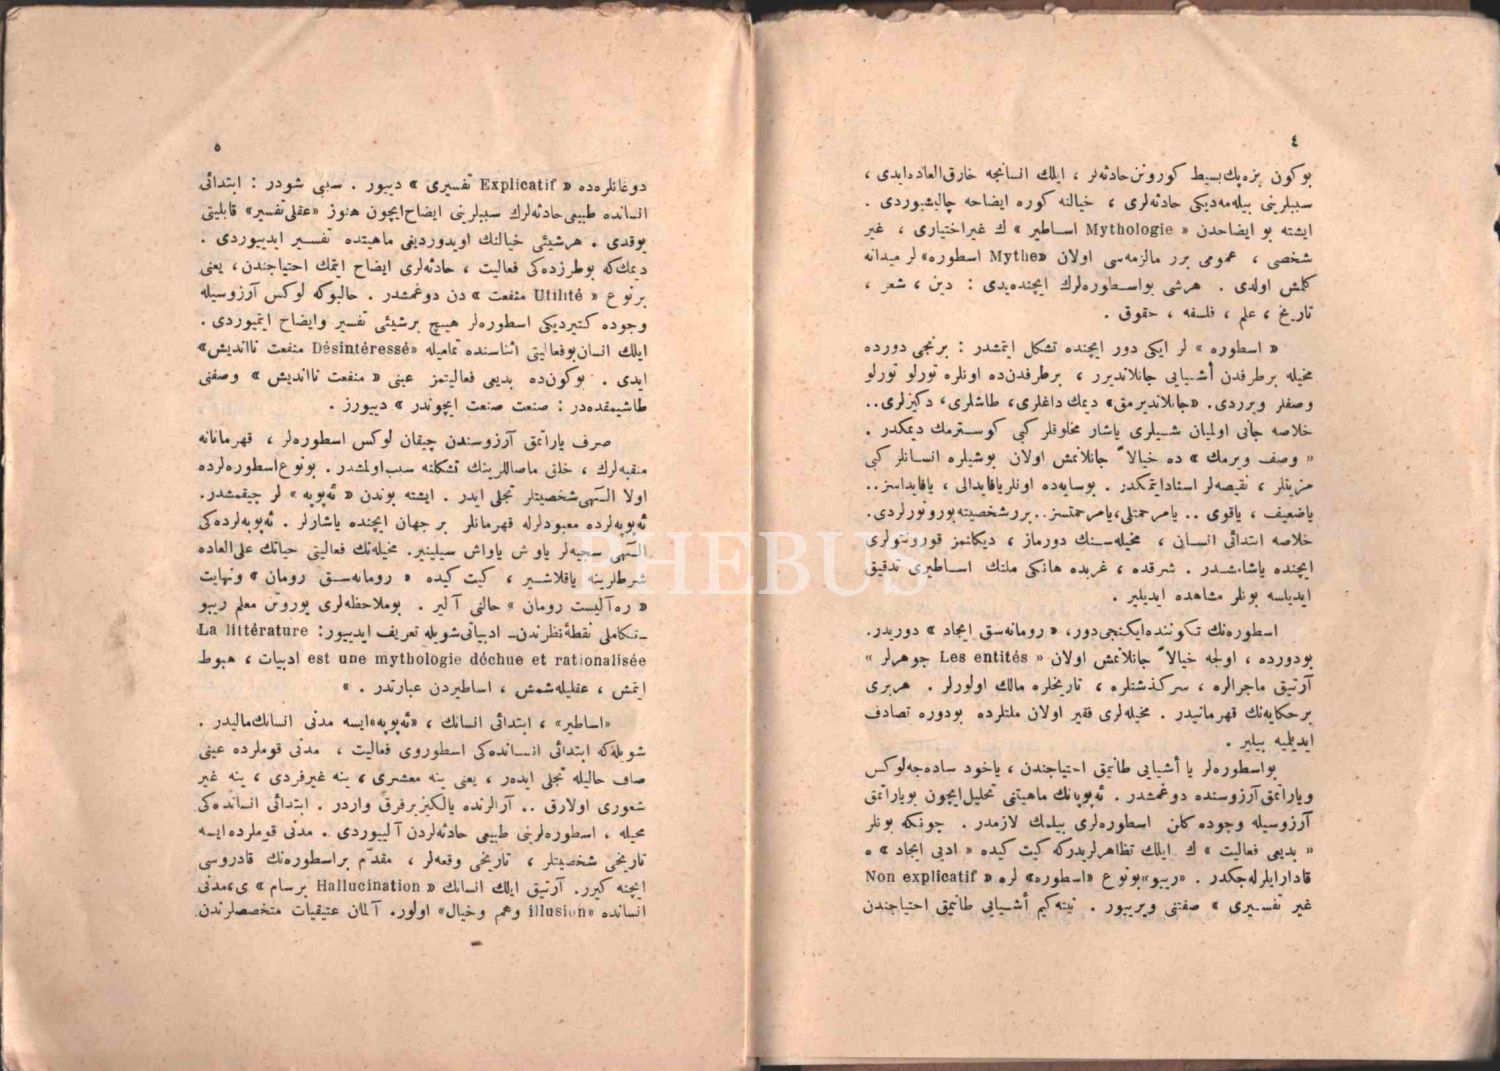 ٤
بوكون بزه پك بسيط كورونن حادثه‌لر ، ايلك انسانجه خارق‌العاده‌ايدى ،
سببلرينى بيله‌مه‌ديكى حادثه‌لرى ، خيالنه كوره ايضاحه چاليشيوردى .
ايشته بو ايضاحدن « Mythologie اساطير » ك غيراختيارى ، غير
شخصى ، عمومى برر مالزمه‌سى اولان «Mythe اسطوره» لر ميدانه
كلمش اولدى . هرشى بواسطوره‌لرك ايچنده‌يدى : دين ، شعر ،
تاريخ ، علم ، فلسفه ، حقوق .
« اسطوره » لر ايكى دور ايچنده تشكل ايتمشدر : برنجى دورده
مخيله برطرفدن أشيايى جانلانديرر ، برطرفدن‌ده اونلره تورلو تورلو
وصفلر ويرردى. «جانلانديرمق» ديمك داغلرى، طاشلرى، دكيزلرى..
خلاصه جانى اولميان شيلرى ياشار مخلوقلر كبى كوسترمك ديمكدر .
« وصف ويرمك » ده خيالاً جانلانمش اولان بوشيلره انسانلر كبى
مزيتلر ، نقيصه‌لر اسناد ايتمكدر . بوسايه‌ده اونلر يافايدالى ، يافايداسز..
ياضعيف ، ياقوى .. يامرحمتلى، يامرحمتسز.. بررشخصيته بورونورلردى.
خلاصه ابتدائى انسان ، مخيله‌سنك دورماز ، ديكلنمز قورونتولرى
ايچنده ياشامشدر . شرقده ، غربده هانكى ملتك اساطيرى تدقيق
ايديلسه بونلر مشاهده ايديلير .
اسطوره‌نك تكوننده ايكنجى دور، « رومانه‌سق ايجاد » دوريدر.
بودورده ، اولجه خيالاً جانلانمش اولان « Les entités جوهرلر »
آرتيق ماجرالره ، سركذشتلره ، تاريخلره مالك اولورلر . هربرى
برحكايه‌نك قهرمانيدر . مخيله‌لرى فقير اولان ملتلرده بودوره تصادف
ايديلميه بيلير .
بواسطوره‌لر يا أشيايى طانيمق احتياجندن ، ياخود ساده‌جه لوكس
وياراتمق آرزوسنده دوغمشدر . ئه‌پوپانك ماهيتنى تحليل ايچون بوياراتمق
آرزوسيله وجوده كلن اسطوره‌لرى بيلمك لازمدر . چونكه بونلر
« بديعى فعاليت » ك ايلك تظاهرلريدركه كيت كيده « ادبى ايجاد » ه
قادار ايلرله‌جكدر . «ريبو» بونوع «اسطوره» لره « Non explicatif
غير تفسيرى » صفتنى ويرييور . نيته‌كيم أشيايى طانيمق احتياجندن
٥
دوغانلره‌ده « Explicatif تفسيرى » دييور . سببى شودر : ابتدائى
انسانده طبيعى حادثه‌لرك سببلرينى ايضاح ايچون هنوز «عقلى تفسير» قابليتى
يوقدى . هرشيئى خيالنك اويدورديغى ماهيتده تفسير ايدييوردى .
ديمك‌كه بوطرزده‌كى فعاليت ، حادثه‌لرى ايضاح ايتمك احتياجندن، يعنى
برنوع « Utilité منفعت » دن دوغمشدر . حالبوكه لوكس آرزوسيله
وجوده كتيرديكى اسطوره‌لر هيچ برشيئى تفسير وايضاح ايتميوردى .
ايلك انسان بوفعاليتى اثناسنده تماميله «Désintéressé منفعت نا انديش»
ايدى . بوكون‌ده بديعى فعاليتمز عينى « منفعت نا انديش » وصفنى
طاشيمقده‌در : صنعت صنعت ايچوندر » دييورز .
صرف ياراتمق آرزوسندن چيقان لوكس اسطوره‌لر ، قهرمانانه
منقبه‌لرك ، خلق ماصاللرينك تشكلنه سبب اولمشدر. بونوع اسطوره‌لرده
اولا آلهى شخصيتلر تجلى ايدر . ايشته بوندن « ئه‌پوپه » لر چيقمشدر.
ئه‌پوپه‌لرده معبودلرله قهرمانلر بر جهان ايچنده ياشارلر . ئه‌پوپه‌لرده‌كى
آلهى سجيه‌لر ياوش ياواش سيلينير. مخيله‌نك فعاليتى حياتك على‌العاده
شرطلرينه ياقلاشير ، كيت كيده « رومانه‌سق رومان » ونهايت
« ره‌آليست رومان » حالنى آلير . بوملاحظه‌لرى يوروتن معلم ريبو
ـ تكاملى نقطۀ نظرندن ـ ادبياتى شويله تعريف ايدييور: La littérature
est une mythologie déchue et rationalisée ادبيات ، هبوط
ايتمش ، عقليله‌شمش ، اساطيردن عبارتدر . »
«اساطير» ، ابتدائى انسانك ، «ئه‌پوپه» ايسه مدنى انسانك ماليدر .
شويله‌كه ابتدائى انسانده‌كى اسطوروى فعاليت ، مدنى قوملرده عينى
صاف حاليله تجلى ايده‌ر ، يعنى ينه معشرى ، ينه غيرفردى ، ينه غير
شعورى اولارق .. آرالرنده يالكيز برفرق واردر . ابتدائى انسانده‌كى
مخيله ، اسطوره‌لرينى طبيعى حادثه‌لردن آلييوردى . مدنى قوملرده ايسه
تاريخى شخصيتلر ، تاريخى وقعه‌لر ، مقدم بر اسطوره‌نك قادروسى
ايچنه كيرر. آرتيق ايلك انسانك « Hallucination برسام » ى، مدنى
انسانده «illusion وهم وخيال» اولور. آلمان عتيقيات متخصصلرندن